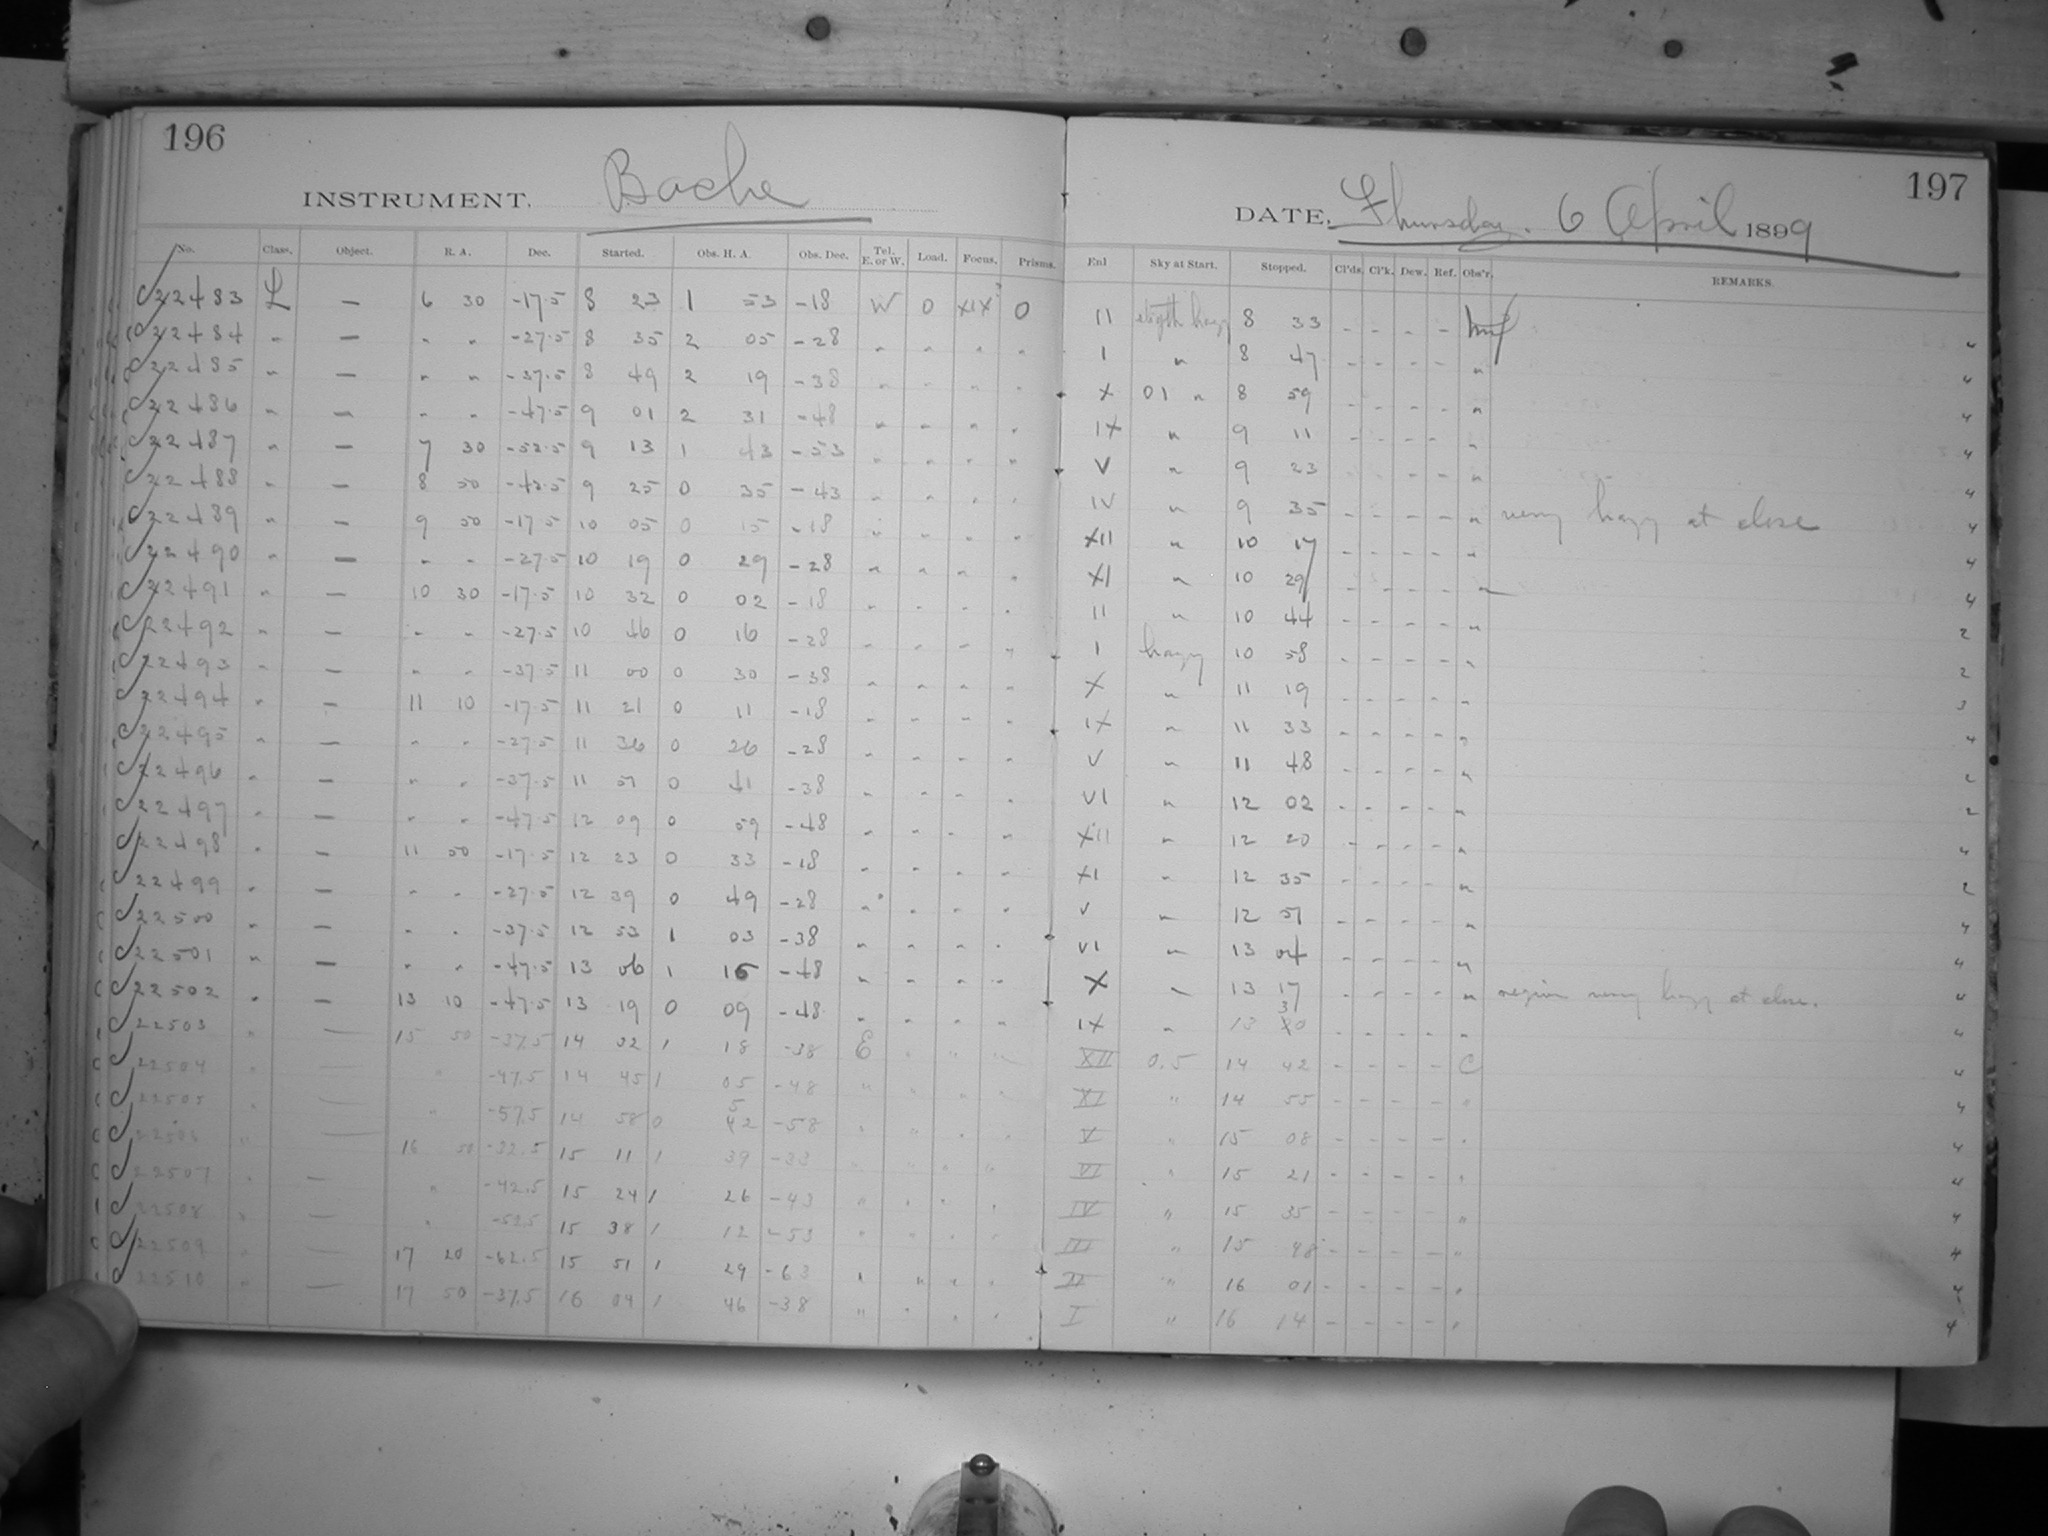 196
INSTRUMENT. Bache
No. Class. Object. R. A. Dec. Started. Obs. H. A. Obs. Dec. Tel. E. or W. Load. Focus. Prisms.
22483 L — 6 30 -17.5 8 23 1 53 -18 W 0 XIX? 0
22484 " — " " -27.5 8 35 2 05 -28 " " " "
22485 " — " " -37.5 8 49 2 19 -38 " " " "
22486 " — " " -47.5 9 01 2 31 -48 " " " "
22487 " — 7 30 -52.5 9 13 1 43 -53 " " " "
22488 " — 8 50 -42.5 9 25 0 35 -43 " " " "
22489 " — 9 50 -17.5 10 05 0 15 -18 " " " "
22490 " — " " -27.5 10 19 0 29 -28 " " " "
22491 " — 10 30 -17.5 10 32 0 02 -18 " " " "
22492 " — " " -27.5 10 46 0 16 -28 " " " "
22493 " — " " -37.5 11 00 0 30 -38 " " " "
22494 " — 11 10 -17.5 11 21 0 11 -18 " " " "
22495 " — " " -27.5 11 36 0 26 -28 " " " "
22496 " — " " -37.5 11 51 0 41 -38 " " " "
22497 " — " " -47.5 12 09 0 59 -48 " " " "
22498 " — 11 50 -17.5 12 23 0 33 -18 " " " "
22499 " — " " -27.5 12 39 0 49 -28 " " " "
22500 " — " " -37.5 12 53 1 03 -38 " " " "
22501 " — " " -47.5 13 06 1 16 -48 " " " "
22502 " — 13 10 -47.5 13 19 0 09 -48 " " " "
22503 " — 15 50 -37.5 14 32 1 18 -38 E " " "
22504 " — " -47.5 14 45 1 05 -48 " " " "
22505 " — " -57.5 14 58 0 52 -58 " " " "
22506 " — 16 50 -32.5 15 11 1 39 -33 " " " "
22507 " — " -42.5 15 24 1 26 -43 " " " "
22508 " — " -52.5 15 38 1 12 -53 " " " "
22509 " — 17 20 -62.5 15 51 1 29 -63 " " " "
22510 " — 17 50 -37.5 16 04 1 46 -38 " " " "
197
DATE, Thursday. 6 April 1899
Enl Sky at Start. Stopped. Cl'ds. Cl'k. Dew. Ref. Obs'r. REMARKS.
II hazy 8 33 - - - - 4
I " 8 47 - - - - " 4
X 01 " 8 59 - - - - " 4
IX " 9 11 - - - - " 4
V " 9 23 - - - - " 4
IV " 9 35 - - - - " very hazy at close 4
XII " 10 17 - - - - " 4
XI " 10 29 - - - - " 4
II " 10 44 - - - - " 2
I hazy 10 58 - - - - " 2
X " 11 19 - - - - " 3
IX " 11 33 - - - - " 4
V " 11 48 - - - - " 2
VI " 12 02 - - - - " 2
XII " 12 20 - - - - " 4
XI " 12 35 - - - - " 2
V " 12 51 - - - - " 4
VI " 13 04 - - - - " 4
X " 13 17 - - - - " region very hazy at close. 4
IX " 13 31 - - - - " 4
XII 0.5 14 42 - - - - C 4
XI " 14 55 - - - - " 4
V " 15 08 - - - - " 4
VI " 15 21 - - - - " 4
IV " 15 35 - - - - " 4
III " 15 48 - - - - " 4
II " 16 01 - - - - " 4
I " 16 14 - - - - " 4